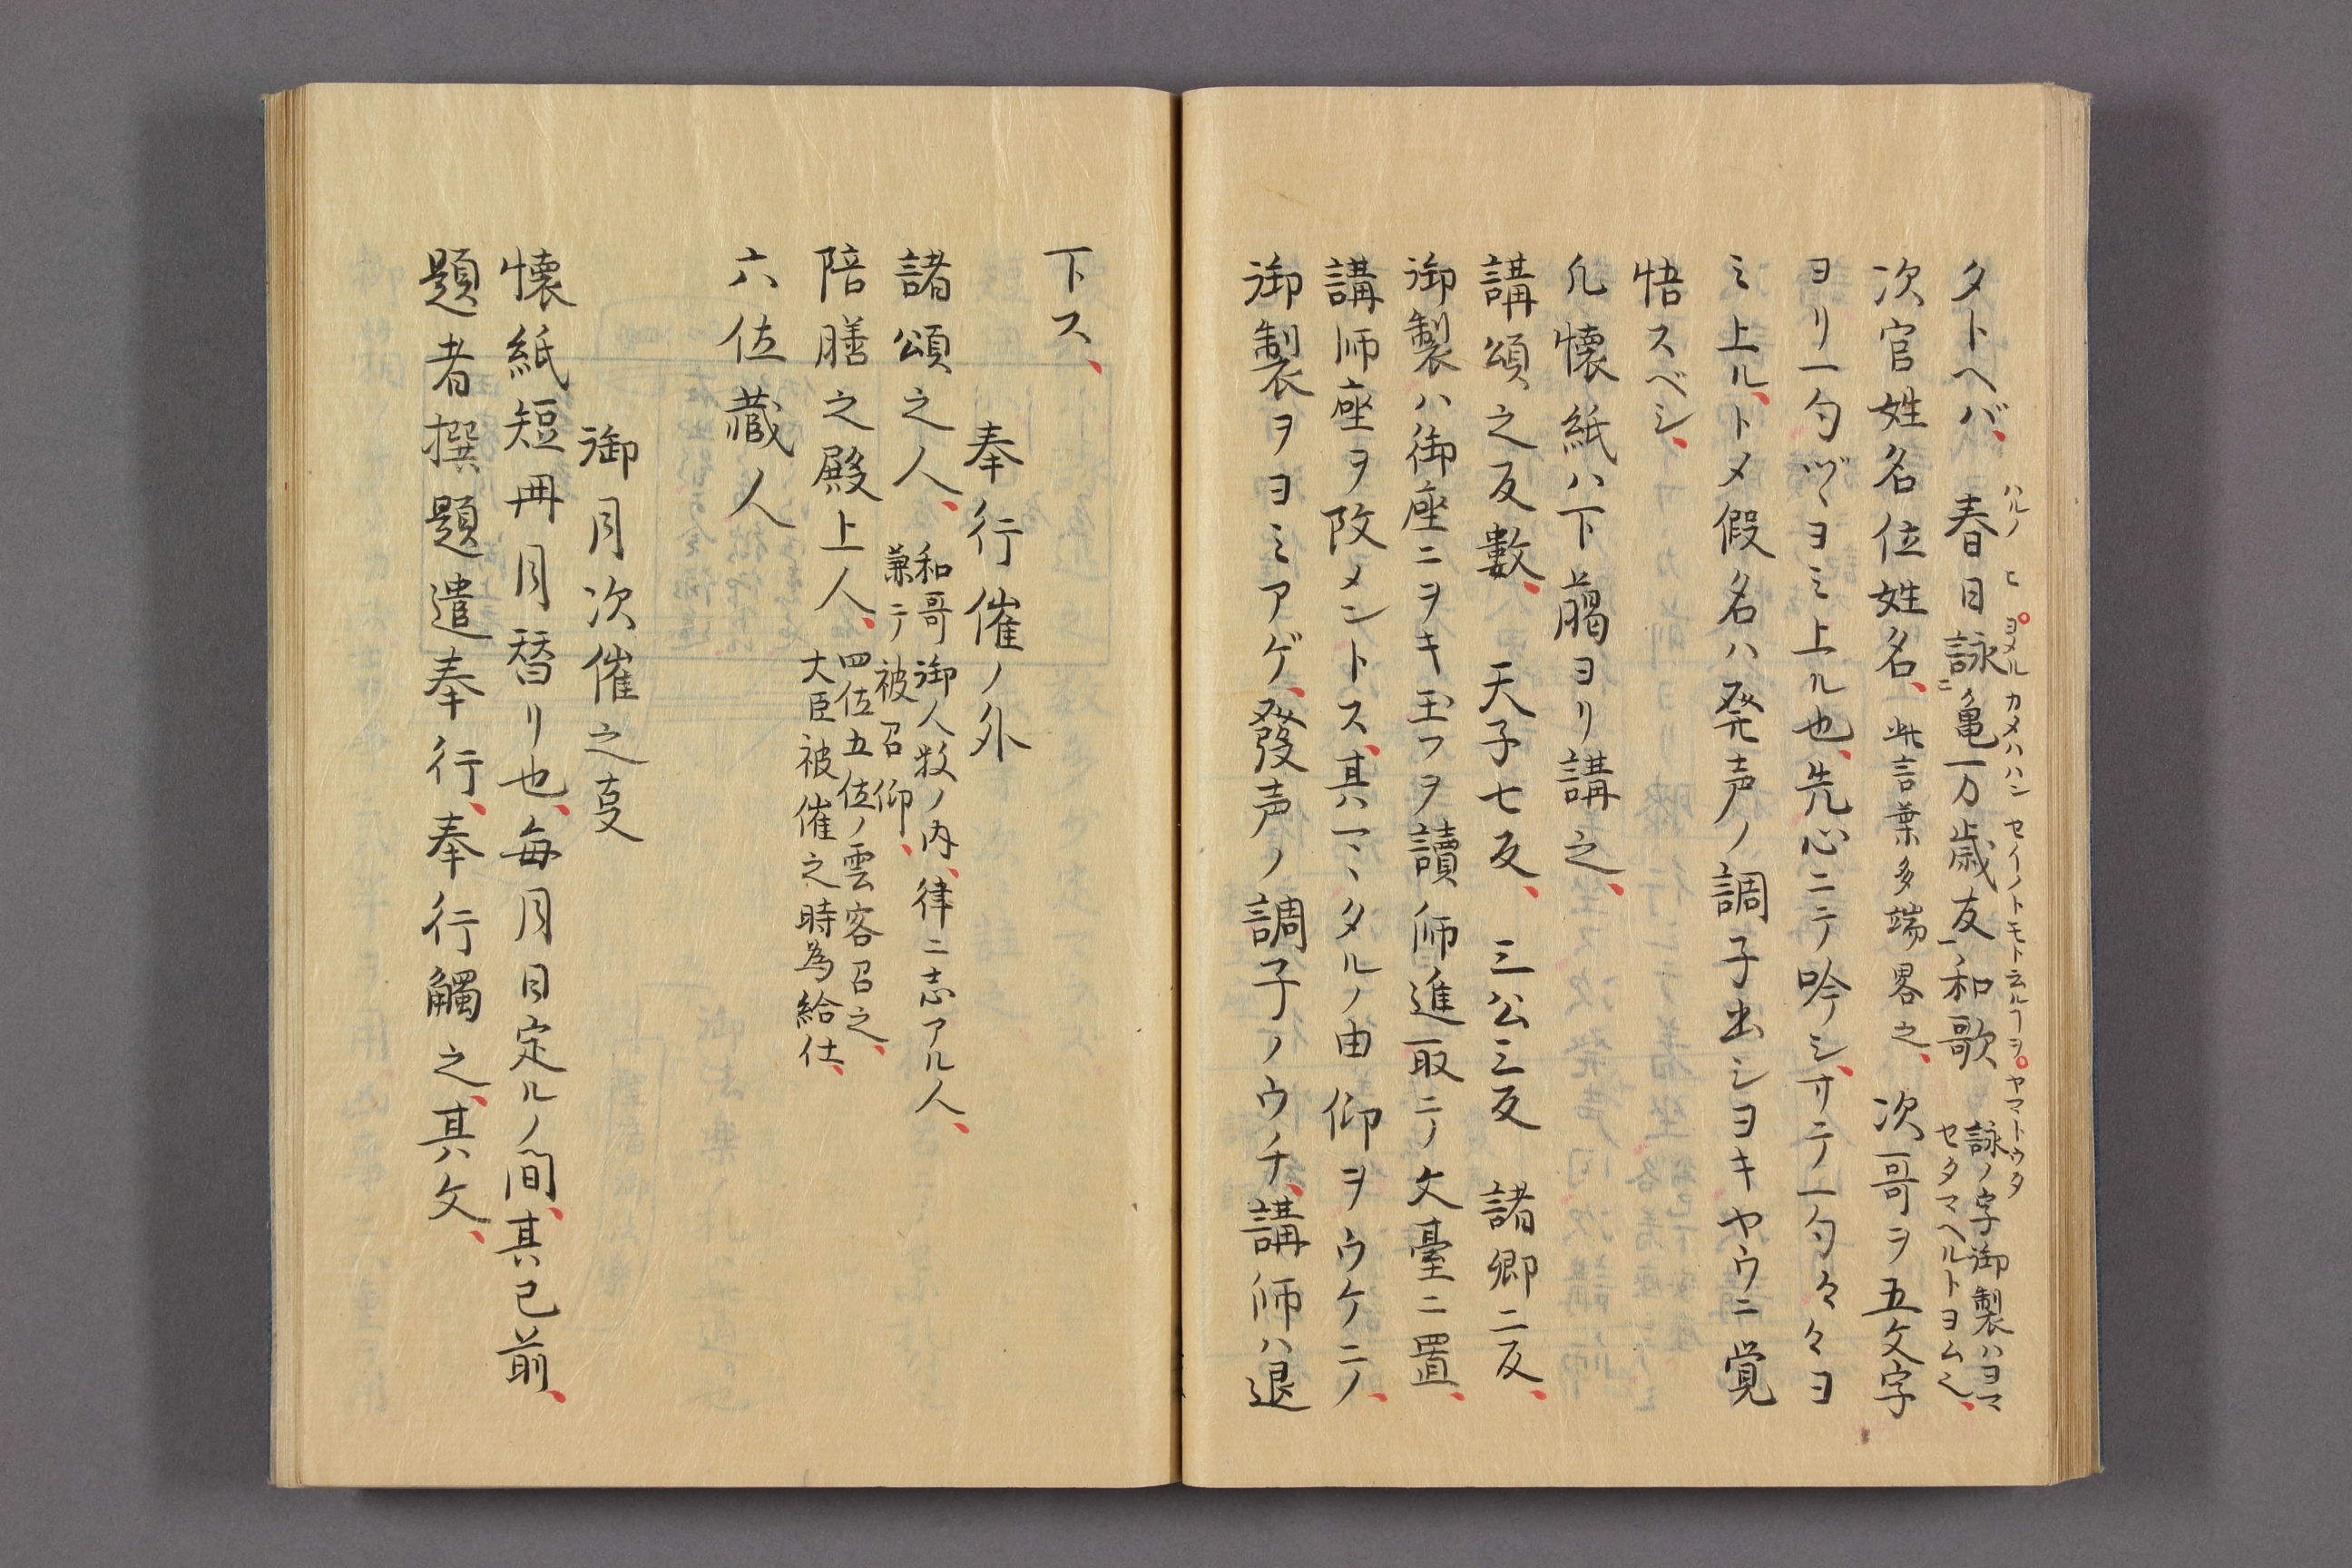 タトヘバ、春日詠ニ亀万歳友ト云ヿヲ和歌
ハルノ ヒ ヨメル カメハハン セイノトモト云ルヿヲ ヤマトウタ
詠ノ字御製ハヨマ
セタマヘルトヨムヘシ、
次官姓名位姓名、此言葉多端畧之、次哥ヲ五文字
ヨリ一勺ヅヽヨミ上ル也、先心ニテ吟シ、サテ一勺々々ヨ
ミ上ル、トメ假名ハ発声ノ調子出シヨキヤウニ覚
悟スベシ、
凢懐紙ハ下﨟ヨリ講之、
講頌之反數、天子七反、三公三反 諸卿二反、
御製ハ御座ニヲキ玉フヲ讀師進取テ文臺ニ置、
講師座ヲ改メントス、其マヽタルノ由仰ヲウケテ、
御製ヲヨミアゲ、發声ノ調子ノウチ、講師ハ退
下ス、
奉行催ノ外
諸頌之人、
和哥御人数ノ内、律ニ志アル人、
兼テ被召仰、
陪膳之殿上人、
四位五位ノ雲客召之、
大臣被催之時為給仕、
六位蔵人
御月次催之𠮷
懐紙短冊月替リ也、毎月日定ルノ間、其已前、
題者撰題遣奉行、奉行觸之、其文、